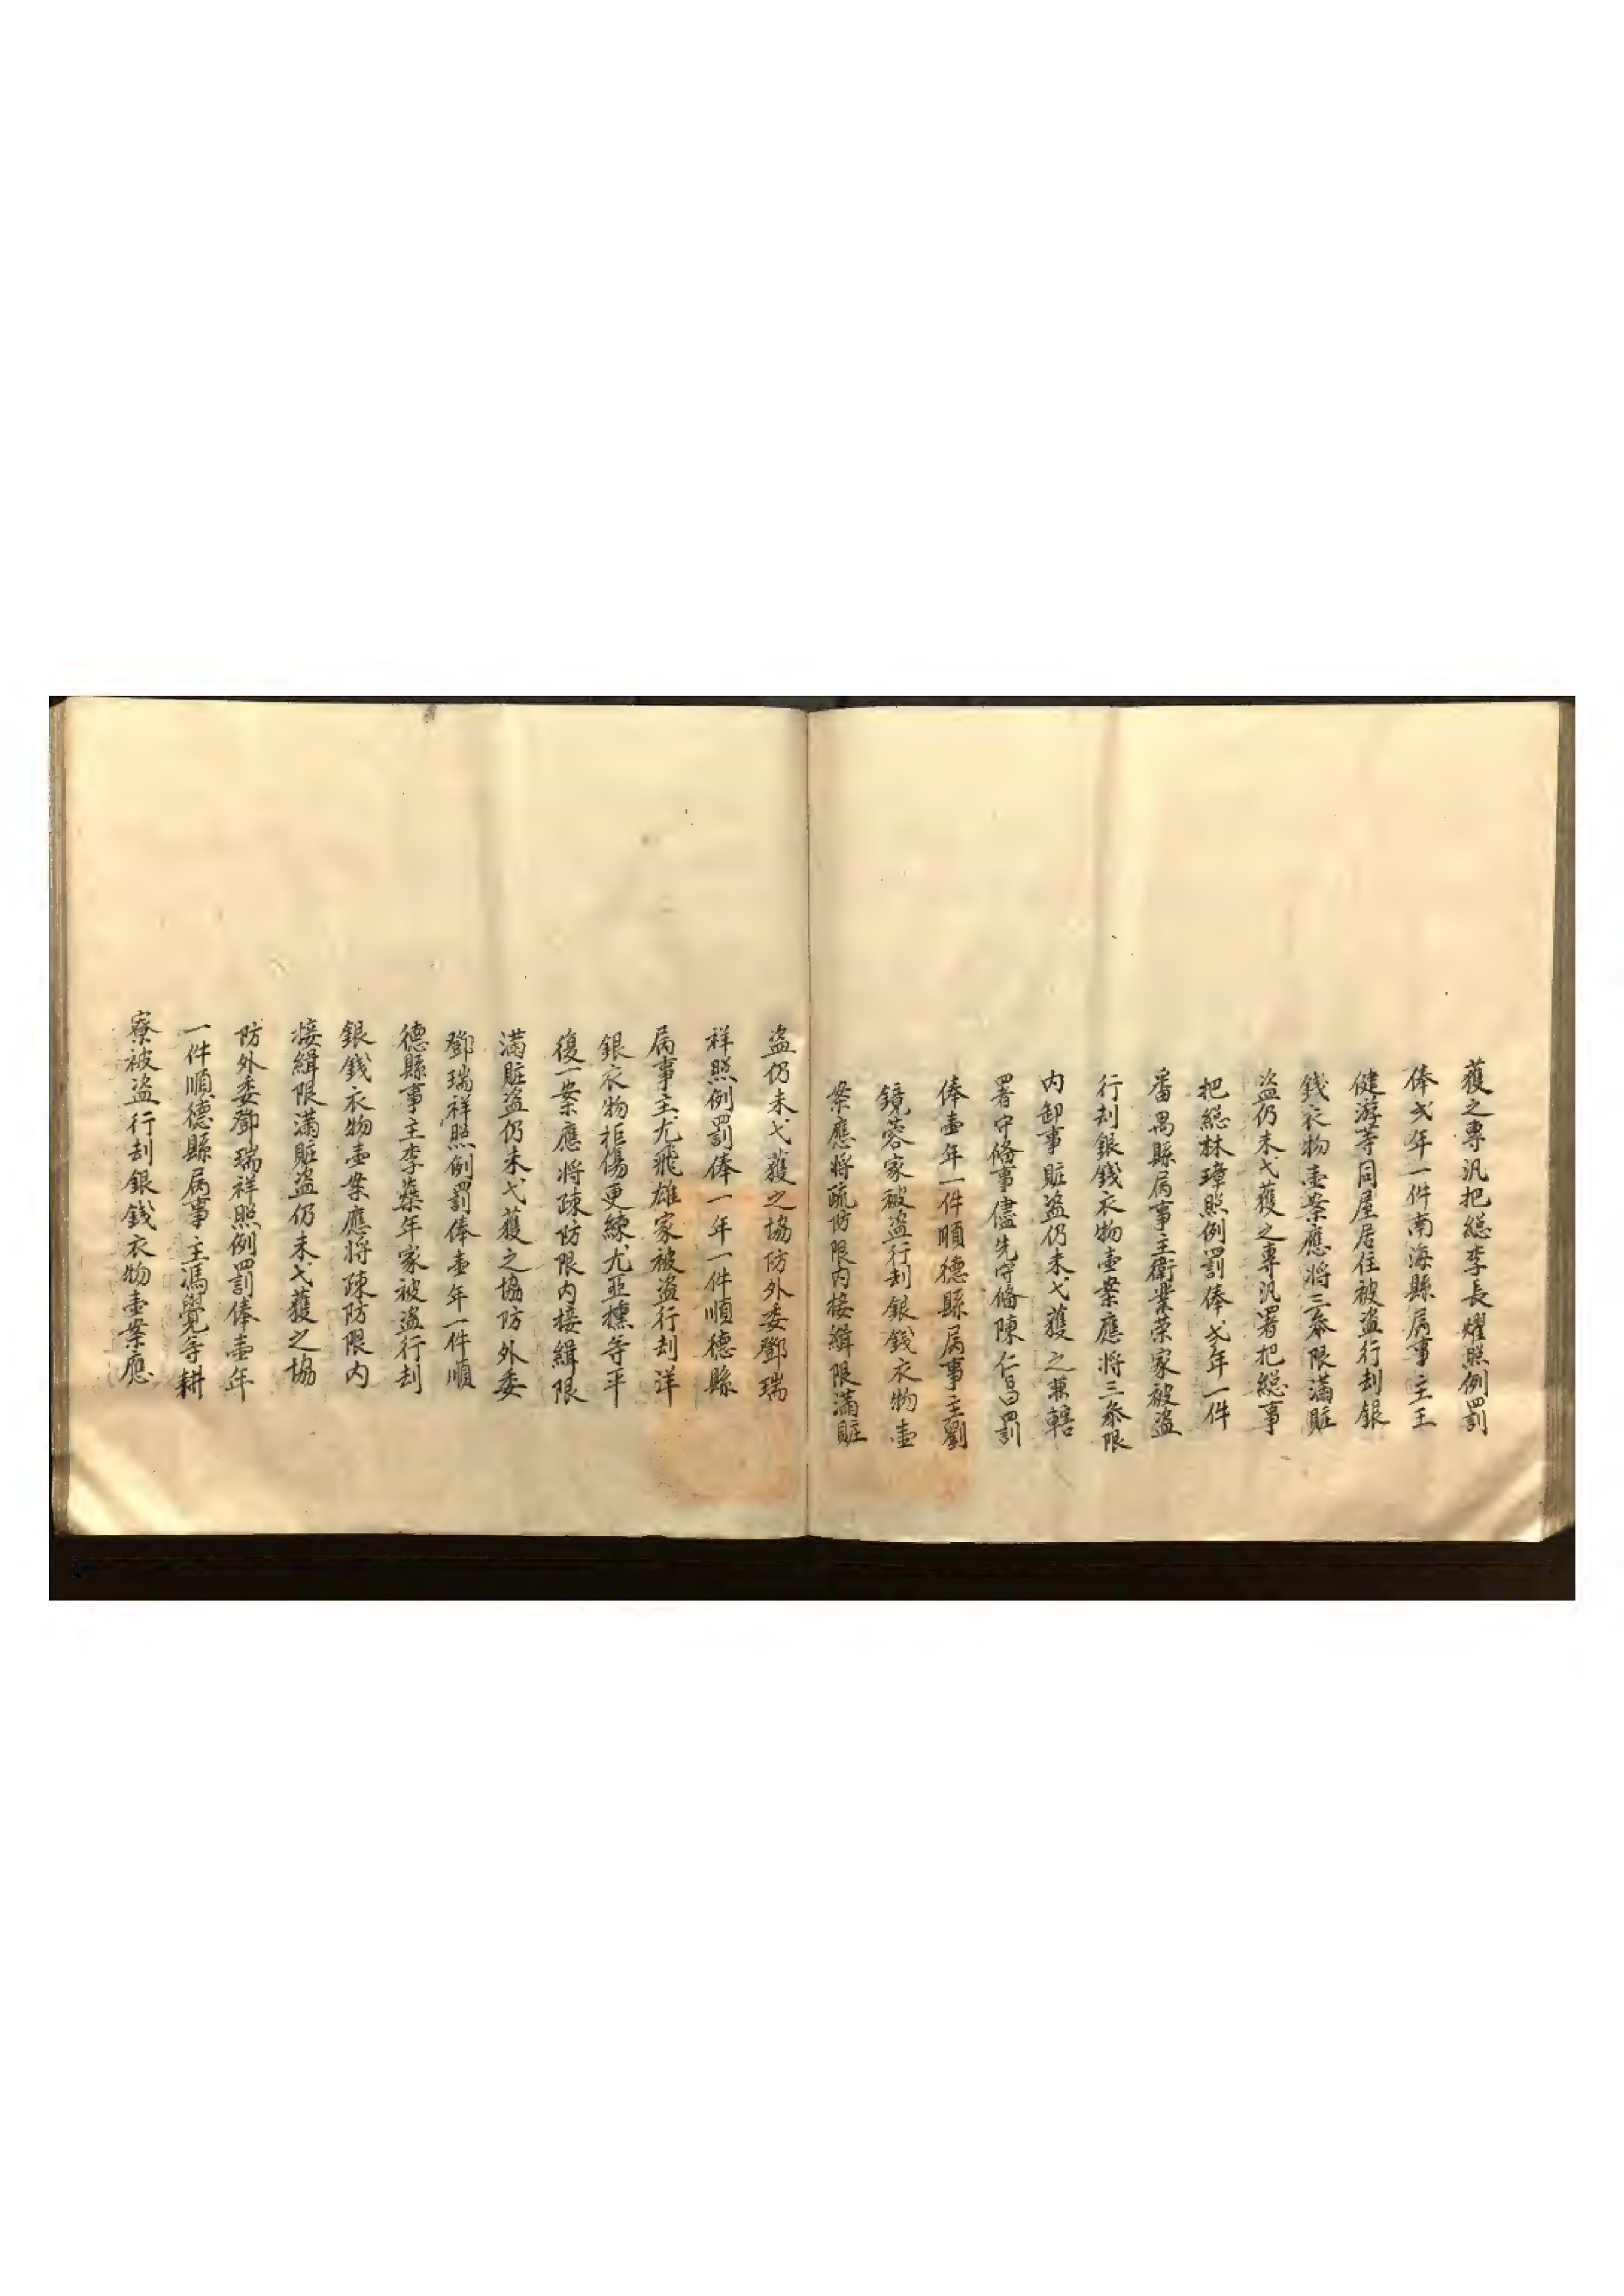 獲之專汛把總李長耀照例罰
俸弍年一件南海縣属事主王
健游等同屋居住被盗行刦銀
錢衣物壹案應將三叅限滿賍
盗仍未弋獲之專汛署把總事
把総林璋照例罰俸弍年一件
番禺縣属事主衛業荣家被盗
行刦銀錢衣物壹案應将三叅限
内卸事賍盗仍未弋獲之兼轄
署守俻事儘先守俻陳仁昌罰
俸壹年一件順德縣属事主劉
鏡蓉家被盗行刦銀錢衣物壹
案應将疏防限内接緝限滿賍
盗仍未弋獲之協防外委鄧瑞
祥照例罰俸一年一件順德縣
属事主尤飛雄家被盗行刦洋
銀衣物拒傷更練尤亚㯲等平
復一案應将疎防限内接緝限
满賍盗仍未弋獲之協防外委
鄧瑞祥照例罰俸壹年一件順
德縣事主李藥年家被盗行刦
銀錢衣物壹案應将疎防限内
接緝限滿賍盗仍未弋獲之協
防外委鄧瑞祥照例罰俸壹年
一件順德縣属事主馮覺等耕
寮被盗行刦銀錢衣物壹案應